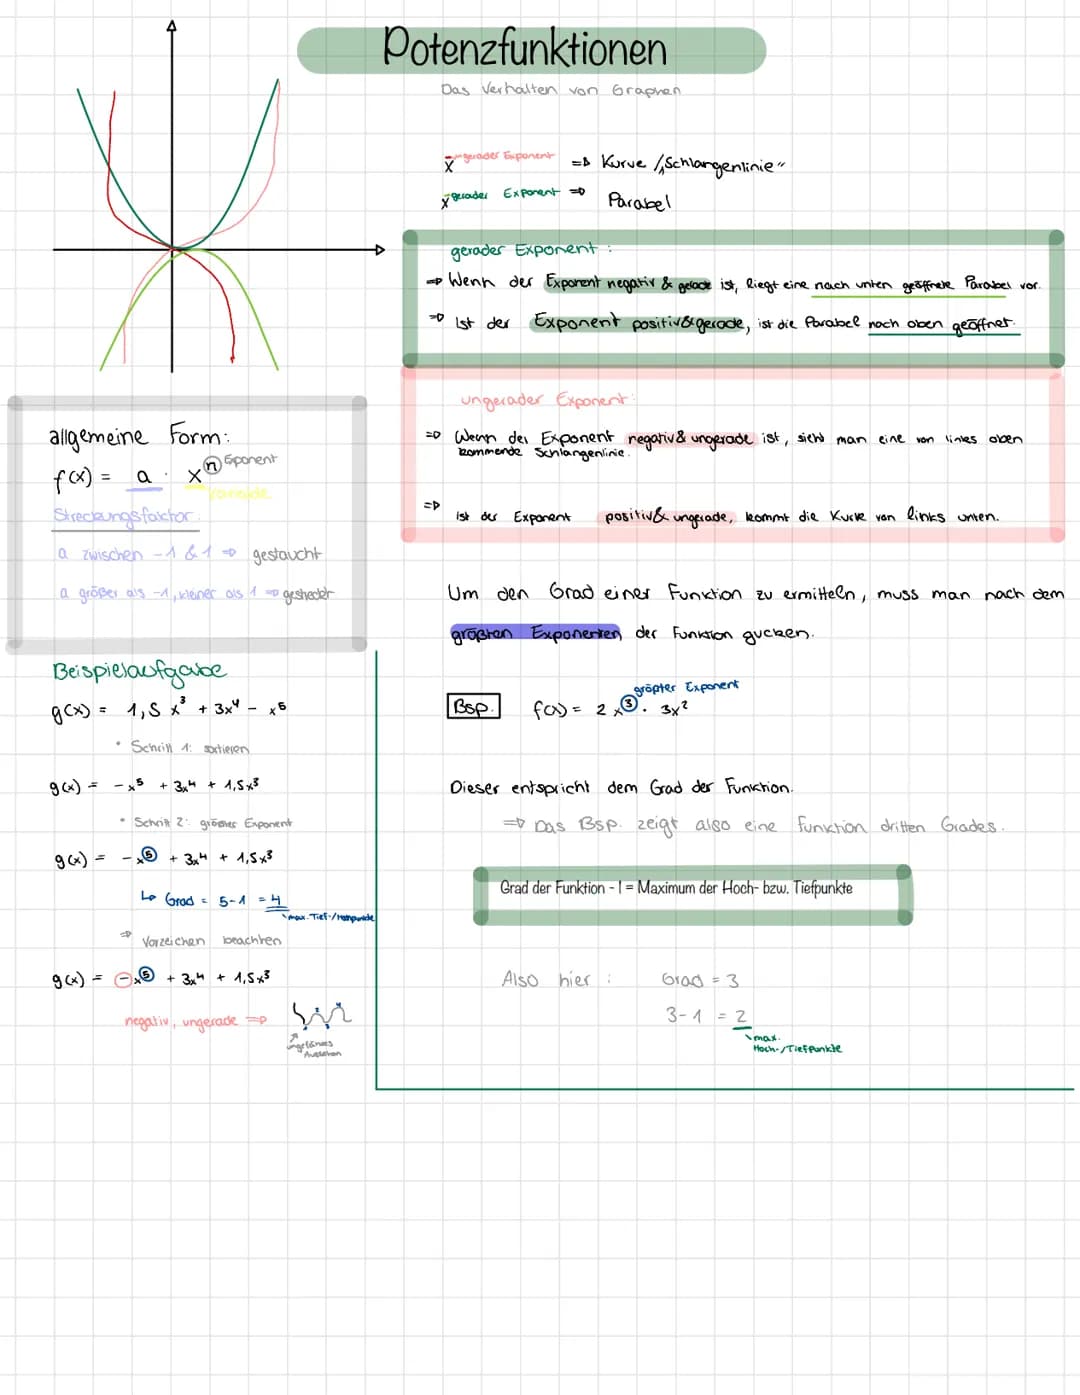 Potenzfunktionen
Das Verhalten von Graphen
x ungerader Exponent => Kurve /„Schlangenlinie"
x gerader Exponent => Parabel
gerader Exponent :
=> Wenn der Exponent negativ & gerade ist, liegt eine nach unten geöffnete Parabel vor.
=> Ist der Exponent positiv & gerade, ist die Parabel nach oben geöffnet.
ungerader Exponent:
=> Wenn der Exponent negativ & ungerade ist, sieht man eine von links oben
kommende Schlangenlinie.
=> ist der Exponent positiv & ungerade, kommt die Kurve von links unten.
allgemeine Form:
f(x) = a · x^n Exponent
Variable
Streckungsfaktor
a zwischen -1 & 1 => gestaucht
a größer als -1, kleiner als 1 => gestreckt
Um den Grad einer Funktion zu ermitteln, muss man nach dem
größten Exponenten der Funktion gucken.
Bsp. f(x) = 2x³ · 3x²
größter Exponent
Dieser entspricht dem Grad der Funktion.
=> Das Bsp. zeigt also eine Funktion dritten Grades.
Grad der Funktion - 1 = Maximum der Hoch- bzw. Tiefpunkte
Also hier : Grad = 3
3-1 = 2
max.
Hoch-/Tiefpunkte
Beispielaufgabe
g(x) = 1,5x³ + 3x⁴ - x⁵
• Schritt 1: sortieren
g(x) = -x⁵ + 3x⁴ + 1,5x³
• Schritt 2: größter Exponent
g(x) = -x⁵ + 3x⁴ + 1,5x³
↳ Grad = 5-1 = 4
max. Tief-/Hochpunkte
=> Vorzeichen beachten
g(x) = -x⁵ + 3x⁴ + 1,5x³
negativ, ungerade =>
ungefähres
Aussehen